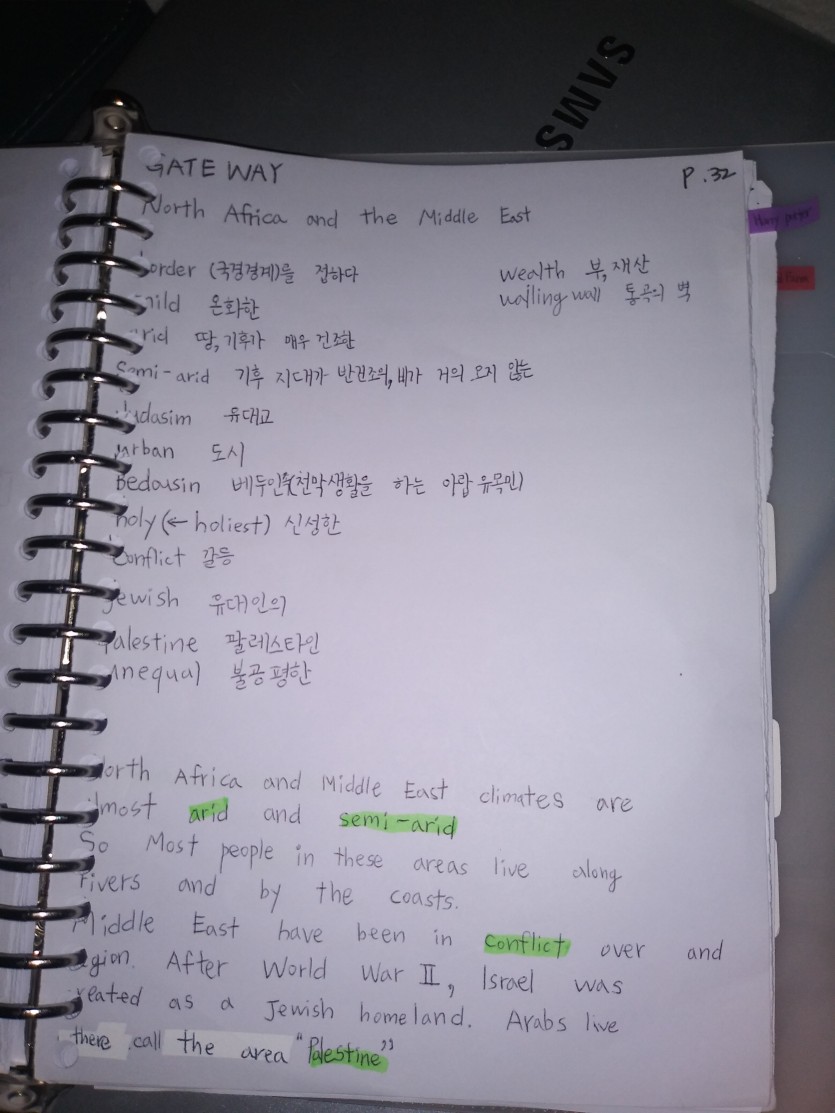 SAMS
GATE WAY
P.32
North Africa and the Middle East
border (국경경계)를 접하다
wealth 부, 재산
mild 온화한
wailing wall 통곡의 벽
arid 땅, 기후가 매우 건조한
Semi-arid 기후 지대가 반건조의, 비가 거의 오지 않는
Judasim 유대교
urban 도시
Bedousin 베두인(천막생활을 하는 아랍 유목민)
holy (← holiest) 신성한
Conflict 갈등
jewish 유대인의
Palestine 팔레스타인
unequal 불공평한
North Africa and Middle East climates are
almost arid and semi-arid
So Most people in these areas live along
rivers and by the coasts.
Middle East have been in conflict over and
region. After World War II, Israel was
created as a Jewish homeland. Arabs live
there call the area "Palestine"